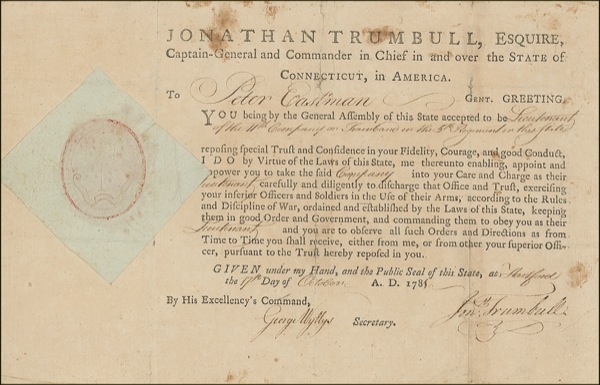 JONATHAN TRUMBULL, ESQUIRE,
Captain-General and Commander in Chief in and over the STATE of
CONNECTICUT, in AMERICA.
To Peter Eastman GENT. GREETING.
YOU being by the General Assembly of this State accepted to be Lieutenant
of the 4th Company or Trainband in the 5th Regiment in this State
reposing special Trust and Confidence in your Fidelity, Courage, and good Conduct,
I DO by Virtue of the Laws of this State, me thereunto enabling, appoint and
empower you to take the said Company into your Care and Charge as their
Lieutenant carefully and diligently to discharge that Office and Trust, exercising
your inferior Officers and Soldiers in the Use of their Arms, according to the Rules
and Discipline of War, ordained and established by the Laws of this State, keeping
them in good Order and Government, and commanding them to obey you as their
Lieutenant and you are to observe all such Orders and Directions as from
Time to Time you shall receive, either from me, or from other your superior Offi-
cer, pursuant to the Trust hereby reposed in you.
GIVEN under my Hand, and the Public Seal of this State, at Hartford
the 17th Day of October A. D. 178
By His Excellency's Command,
George Wyllys Secretary.
Jonth Trumbull